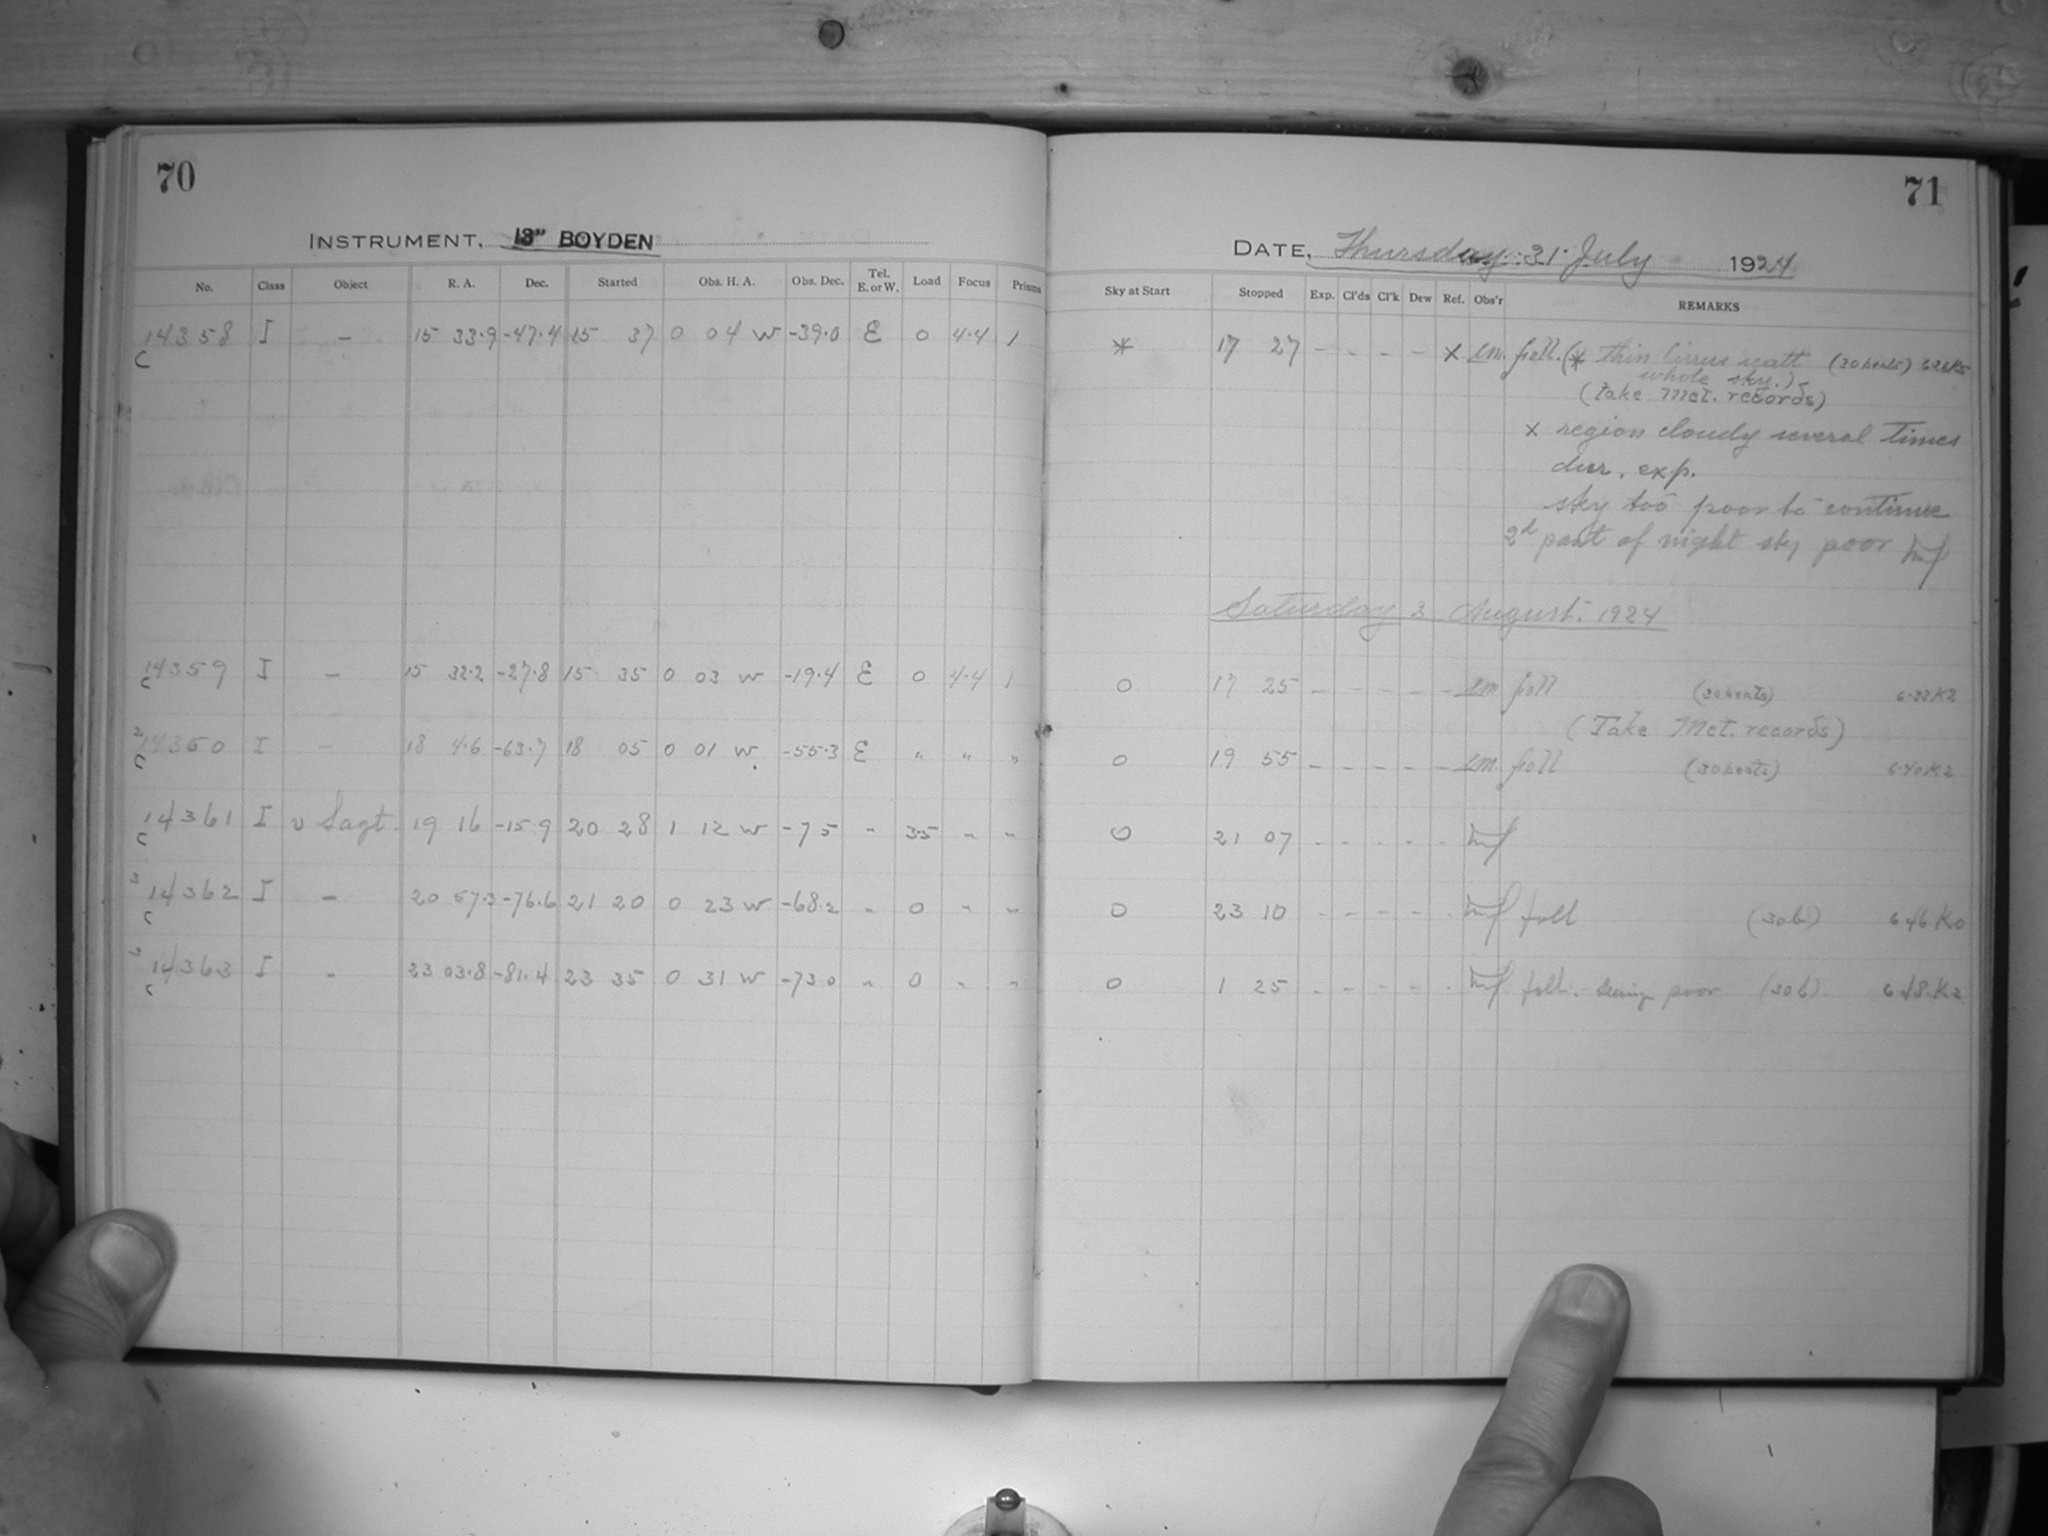 70
INSTRUMENT, 13" BOYDEN
No. Class Object R. A. Dec. Started Obs. H. A. Obs. Dec. Tel. E. or W. Load Focus Prisms
14358 I - 15 33.9 -47.4 15 37 0 04 W -39.0 E 0 4.4 1
C
14359 I - 15 32.2 -27.8 15 35 0 03 W -19.4 E 0 4.4 1
C
14350 I - 18 4.6 -63.7 18 05 0 01 W -55.3 E " " "
C
14361 I υ Sagt. 19 16 -15.9 20 28 1 12 W -7 5 " 35 " "
C
3 14362 I - 20 57.3 -76.6 21 20 0 23 W -68.2 " 0 " "
C
3 14363 I - 23 03.8 -81.4 23 35 0 31 W -73.0 " 0 " "
C
71
DATE, Thursday 31 July 1924
Sky at Start Stopped Exp. Cl'ds Cl'k Dew Ref. Obs'r REMARKS
* 17 27 - - - - x foll. (* thin Cirrus scatt (30 beats)
whole sky.)
(Take Met. records)
x region cloudy several times
dur. exp.
sky too poor to continue
2d part of night sky poor
Saturday 2 August. 1924
0 17 25 - - - - - foll (30 beats) 6.38 K2
(Take Met. records)
0 19 55 - - - - - foll (30 beats) 6.40 K2
0 21 07 - - - - -
0 23 10 - - - - - foll (30 b) 6.46 K0
0 1 25 - - - - - foll. Seeing poor (30 b) 6.48 K2